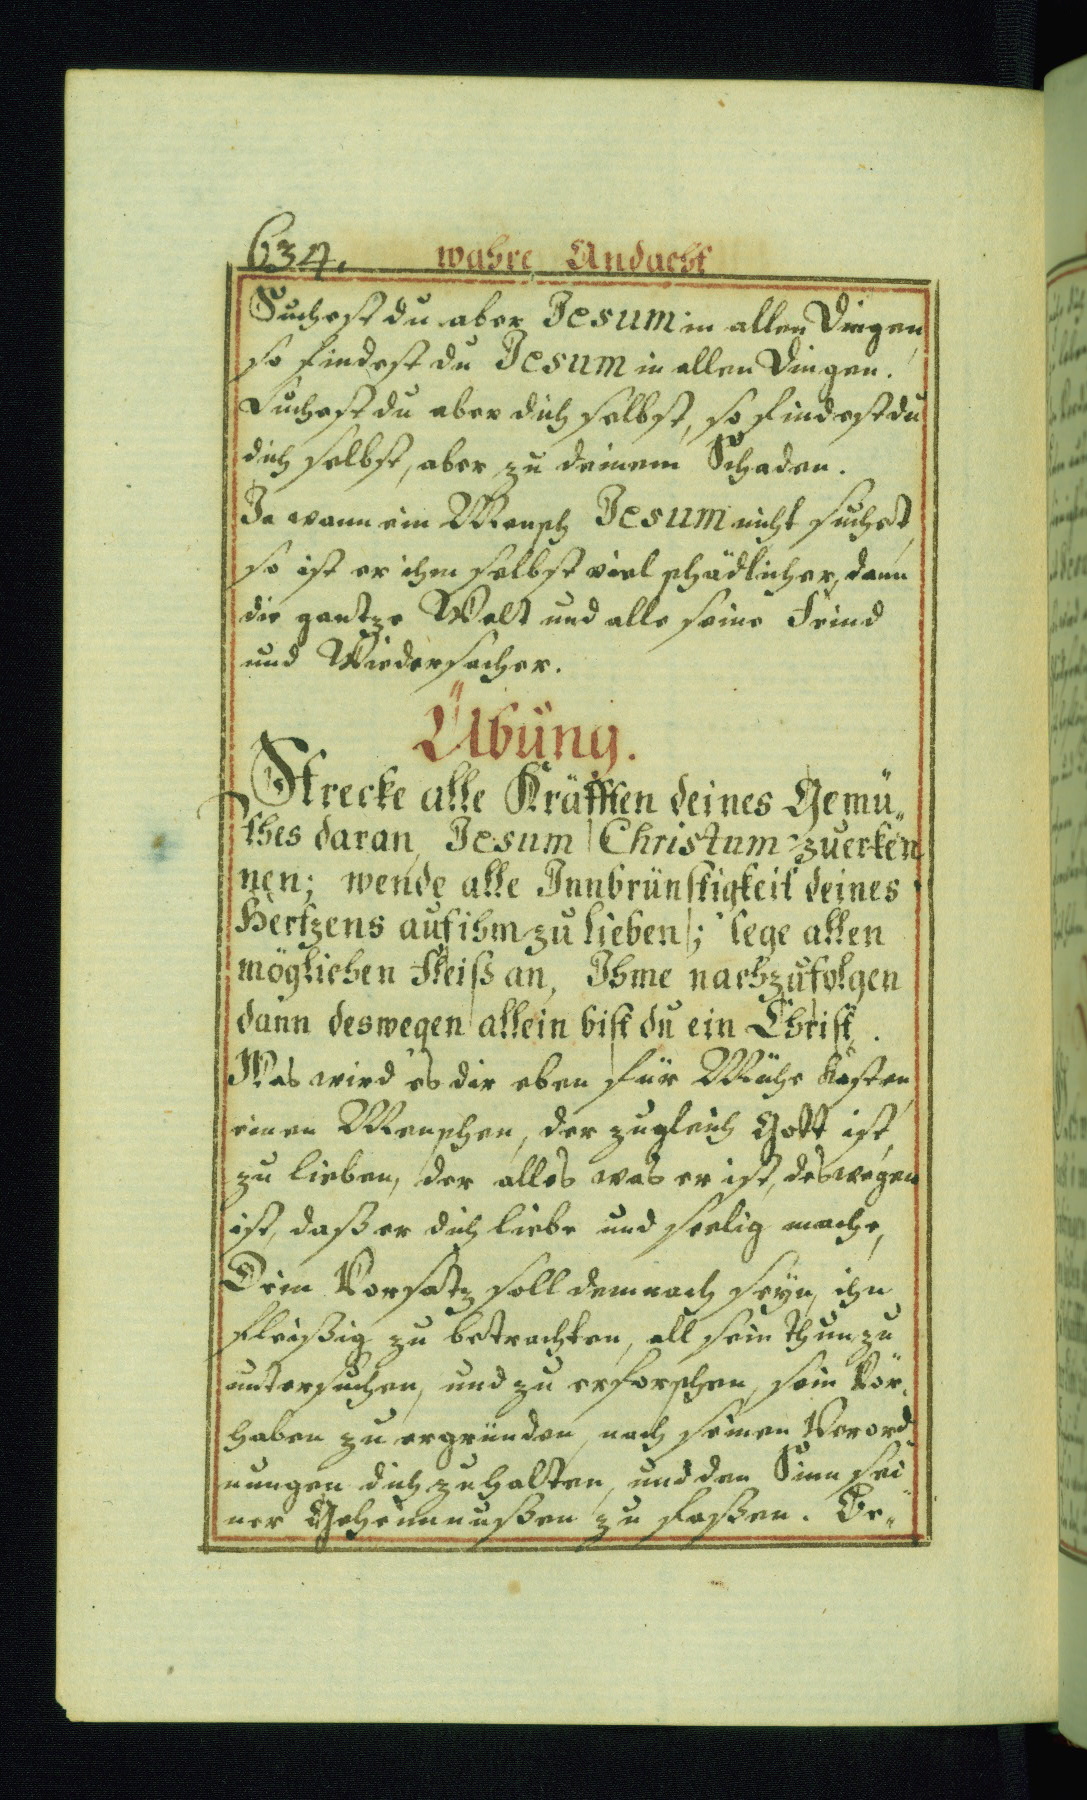 634. wahre Andacht
Suchest du aber Jesum in allen Dingen,
so findest du Jesum in allen Dingen.
Suchest du aber dich selbst, so findest du
dich selbst, aber zu deinem Schaden.
Ja wann ein Mensch Jesum nicht suchet,
so ist er ihm selbst viel schädlicher, dann
die gantze Welt und alle seine Feind
und Wiedersacher.
Übüng.
Strecke alle Kräfften deines Gemü„
thes daran, Jesum Christum zuerken
nen; wende alle Jnnbrünstigkeit deines
Hertzens auf ihm zu lieben; lege allen
möglichen Fleiß an, Jhme nachzufolgen
dann deswegen allein bist du ein Christ.
Was wird es dir eben für Mühe kosten,
einen Menschen, der zugleich Gott ist,
zu lieben, der alles was er ist, deswegen
ist, daß er dich liebe und seelig mache,
Dein Vorsatz soll demnach seyn, ihn
fleißig zu betrachten, all sein Thun zu
untersuchen, und zu erforschen, sein Vor„
haben zu ergründen, nach seinen Verord
nungen dich zuhalten, und den Sinn sei
ner Geheimnußen zu faßen. De„